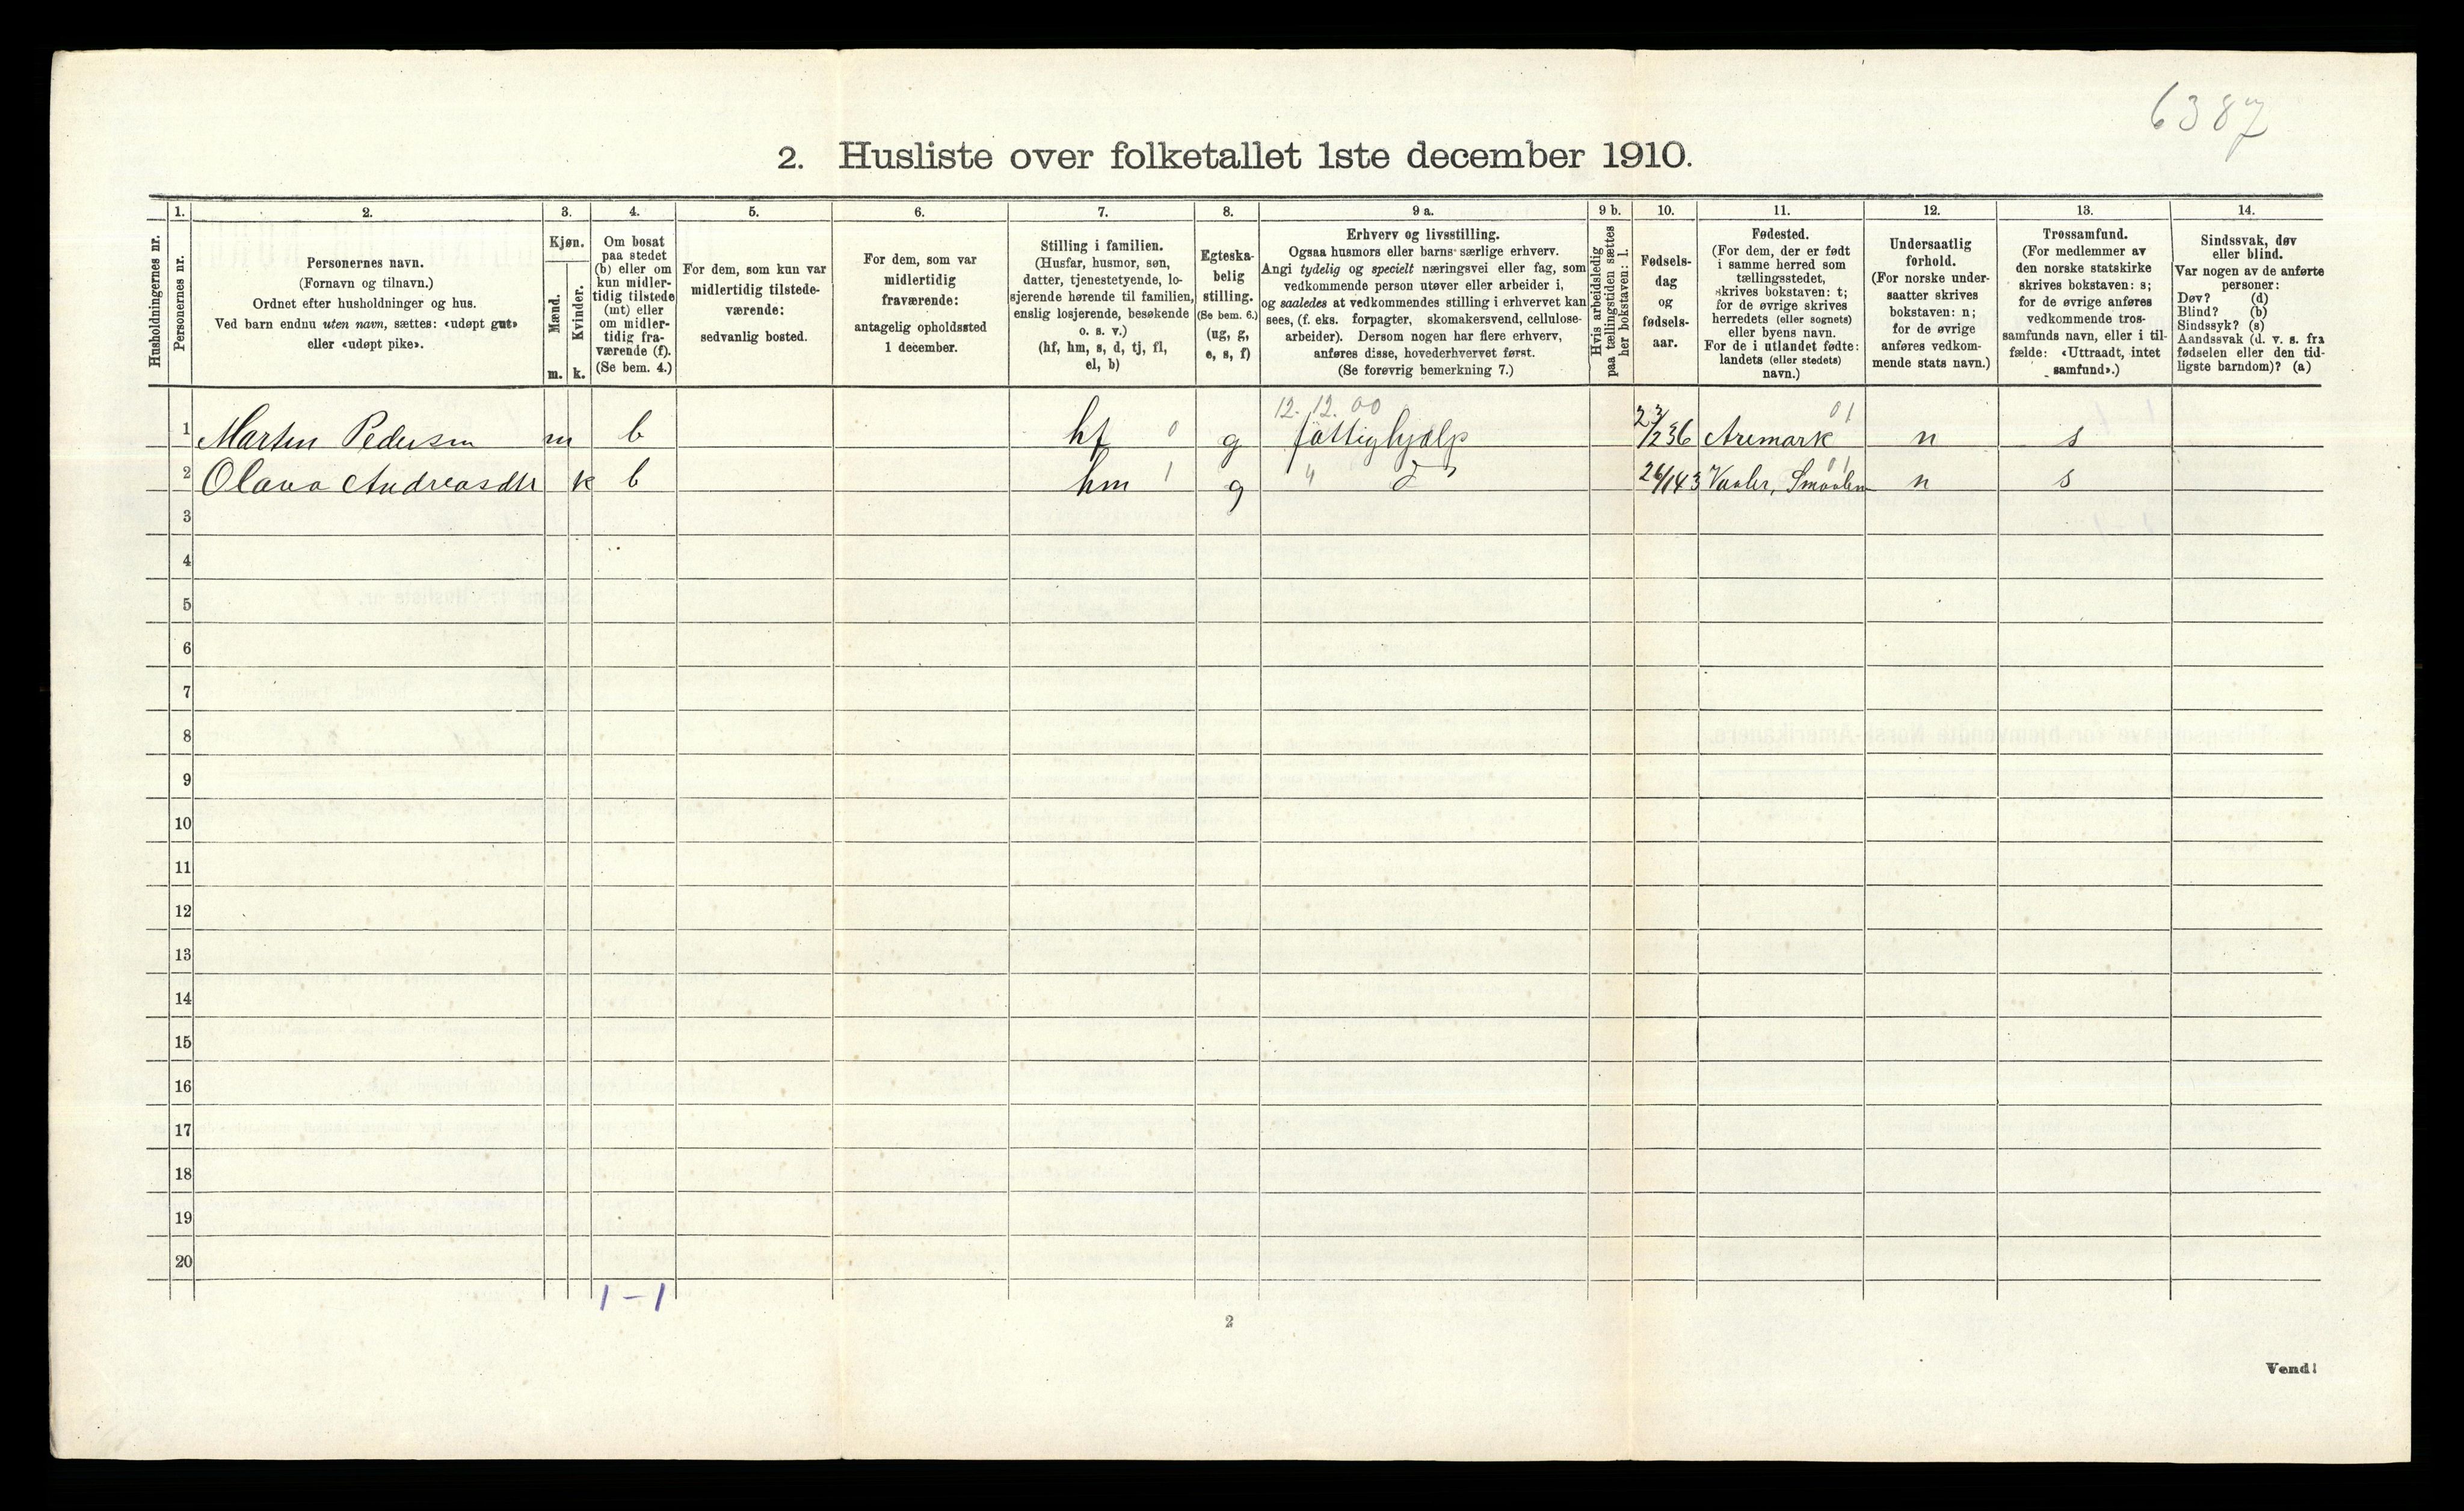 6387
2. Husliste over folketallet 1ste december 1910.
Husholdningernes nr.
1.
Personernes nr.
2.
Personernes navn.
(Fornavn og tilnavn.)
Ordnet efter husholdninger og hus.
Ved barn endnu uten navn, sættes: «udøpt gut»
eller «udøpt pike».
3.
Kjøn.
Mænd.
Kvinder.
m. k.
4.
Om bosat
paa stedet
(b) eller om
kun midler-
tidig tilstede
(mt) eller
om midler-
tidig fra-
værende (f).
(Se bem. 4.)
5.
For dem, som kun var
midlertidig tilstede-
værende:
sedvanlig bosted.
6.
For dem, som var
midlertidig
fraværende:
antagelig opholdssted
1 december.
7.
Stilling i familien.
(Husfar, husmor, søn,
datter, tjenestetyende, lo-
sjerende hørende til familien,
enslig losjerende, besøkende
o. s. v.)
(hf, hm, s, d, tj, fl,
el, b)
8.
Egteska-
belig
stilling.
(Se bem. 6.)
(ug, g,
e, s, f)
9 a.
Erhverv og livsstilling.
Ogsaa husmors eller barns særlige erhverv.
Angi tydelig og specielt næringsvei eller fag, som
vedkommende person utøver eller arbeider i,
og saaledes at vedkommendes stilling i erhvervet kan
sees, (f. eks. forpagter, skomakersvend, cellulose-
arbeider). Dersom nogen har flere erhverv,
anføres disse, hovederhvervet først.
(Se forøvrig bemerkning 7.)
9 b.
Hvis arbeidsledig
paa tællingstiden sættes
her bokstaven: l.
10.
Fødsels-
dag
og
fødsels-
aar.
11.
Fødested.
(For dem, der er født
i samme herred som
tællingsstedet,
skrives bokstaven: t;
for de øvrige skrives
herredets (eller sognets)
eller byens navn.
For de i utlandet fødte:
landets (eller stedets)
navn.)
12.
Undersaatlig
forhold.
(For norske under-
saatter skrives
bokstaven: n;
for de øvrige
anføres vedkom-
mende stats navn.)
13.
Trossamfund.
(For medlemmer av
den norske statskirke
skrives bokstaven: s;
for de øvrige anføres
vedkommende tros-
samfunds navn, eller i til-
fælde: «Uttraadt, intet
samfund».)
14.
Sindssvak, døv
eller blind.
Var nogen av de anførte
personer:
Døv? (d)
Blind? (b)
Sindssyk? (s)
Aandssvak (d. v. s. fra
fødselen eller den tid-
ligste barndom)? (a)
12. 12. 00 01
1 Marten Pedersen m b hf 0 g fattighjælp 23/2 36 Aremark n s
2 Olava Andreasdtr k b hm 1 g " do 26/1 43 Vaaler, Smaalen 01 n s
3
4
5
6
7
8
9
10
11
12
13
14
15
16
17
18
19
20
1 – 1
2
Vend!